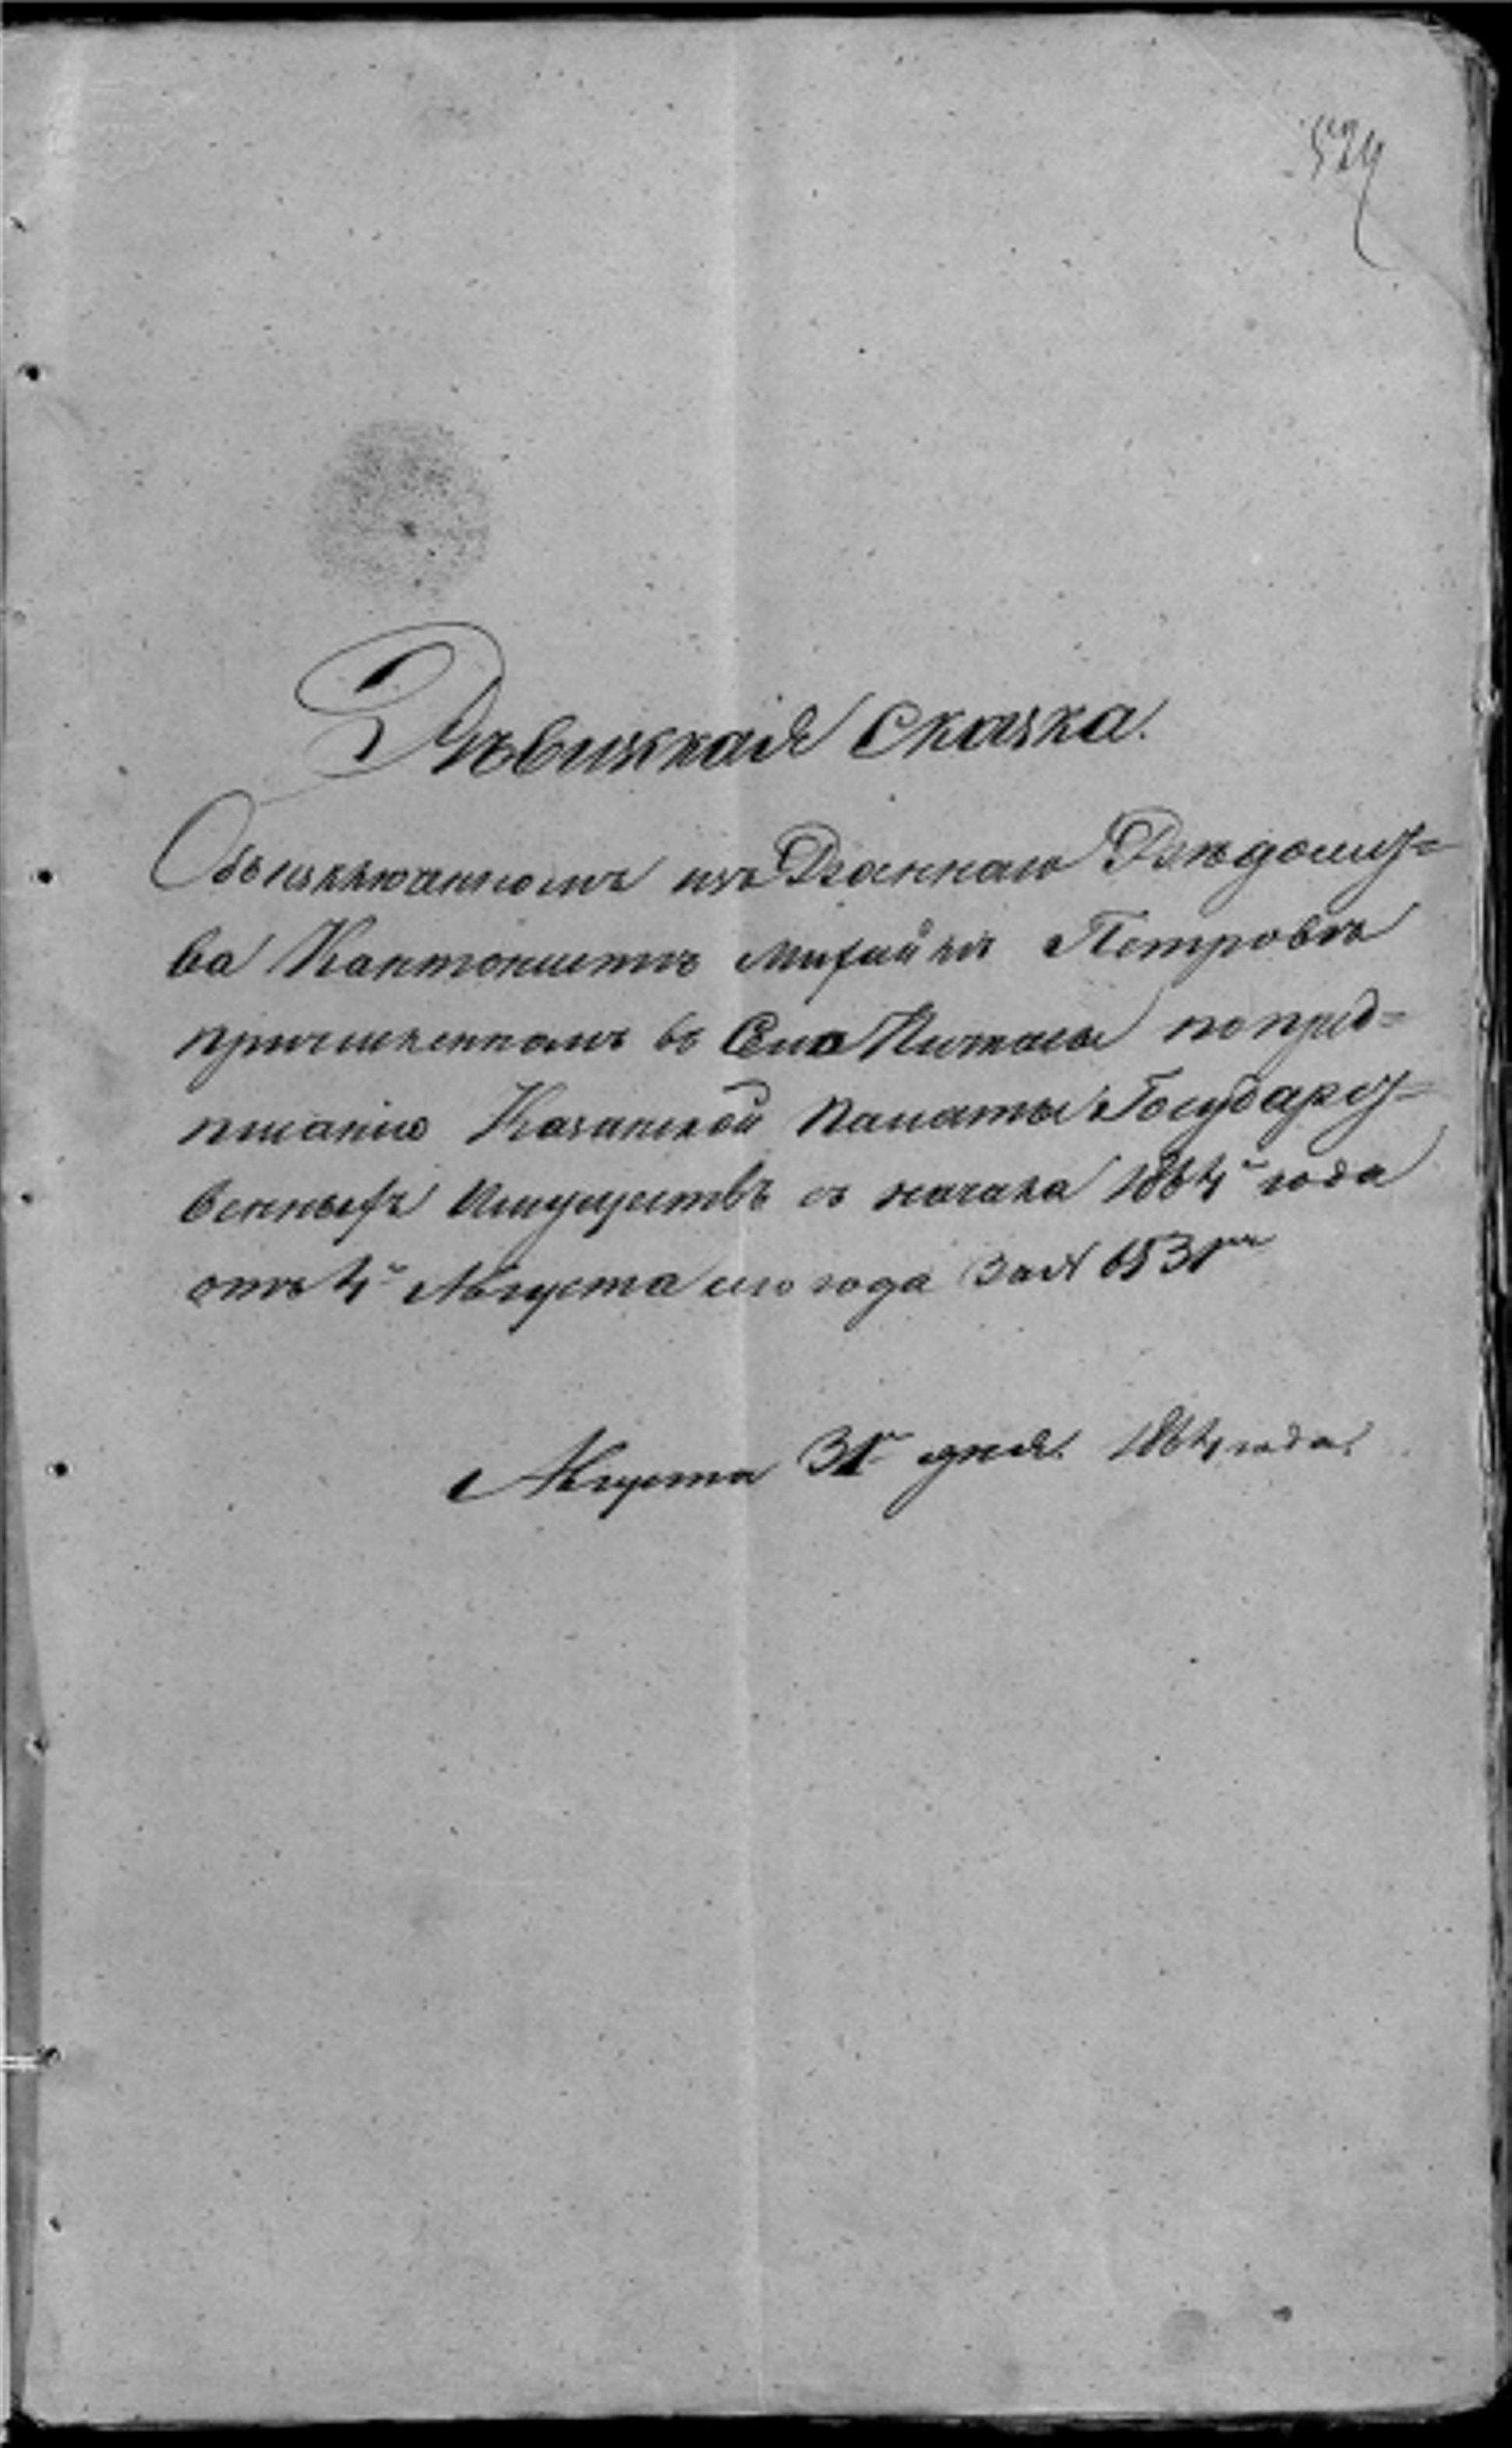 524
Ревижская Сказка.
Объ исключенномъ изъ Военнаго Вѣдомст=
ва Кантонистѣ Михайлѣ Петровѣ
причисленномъ въ Село по пред=
писанію Казанской Палаты Государст=
венныхъ Имуществъ съ начала 1864 года
отъ 4 Августа сего года за № 6531
Августа 31 дня. 1864 года.